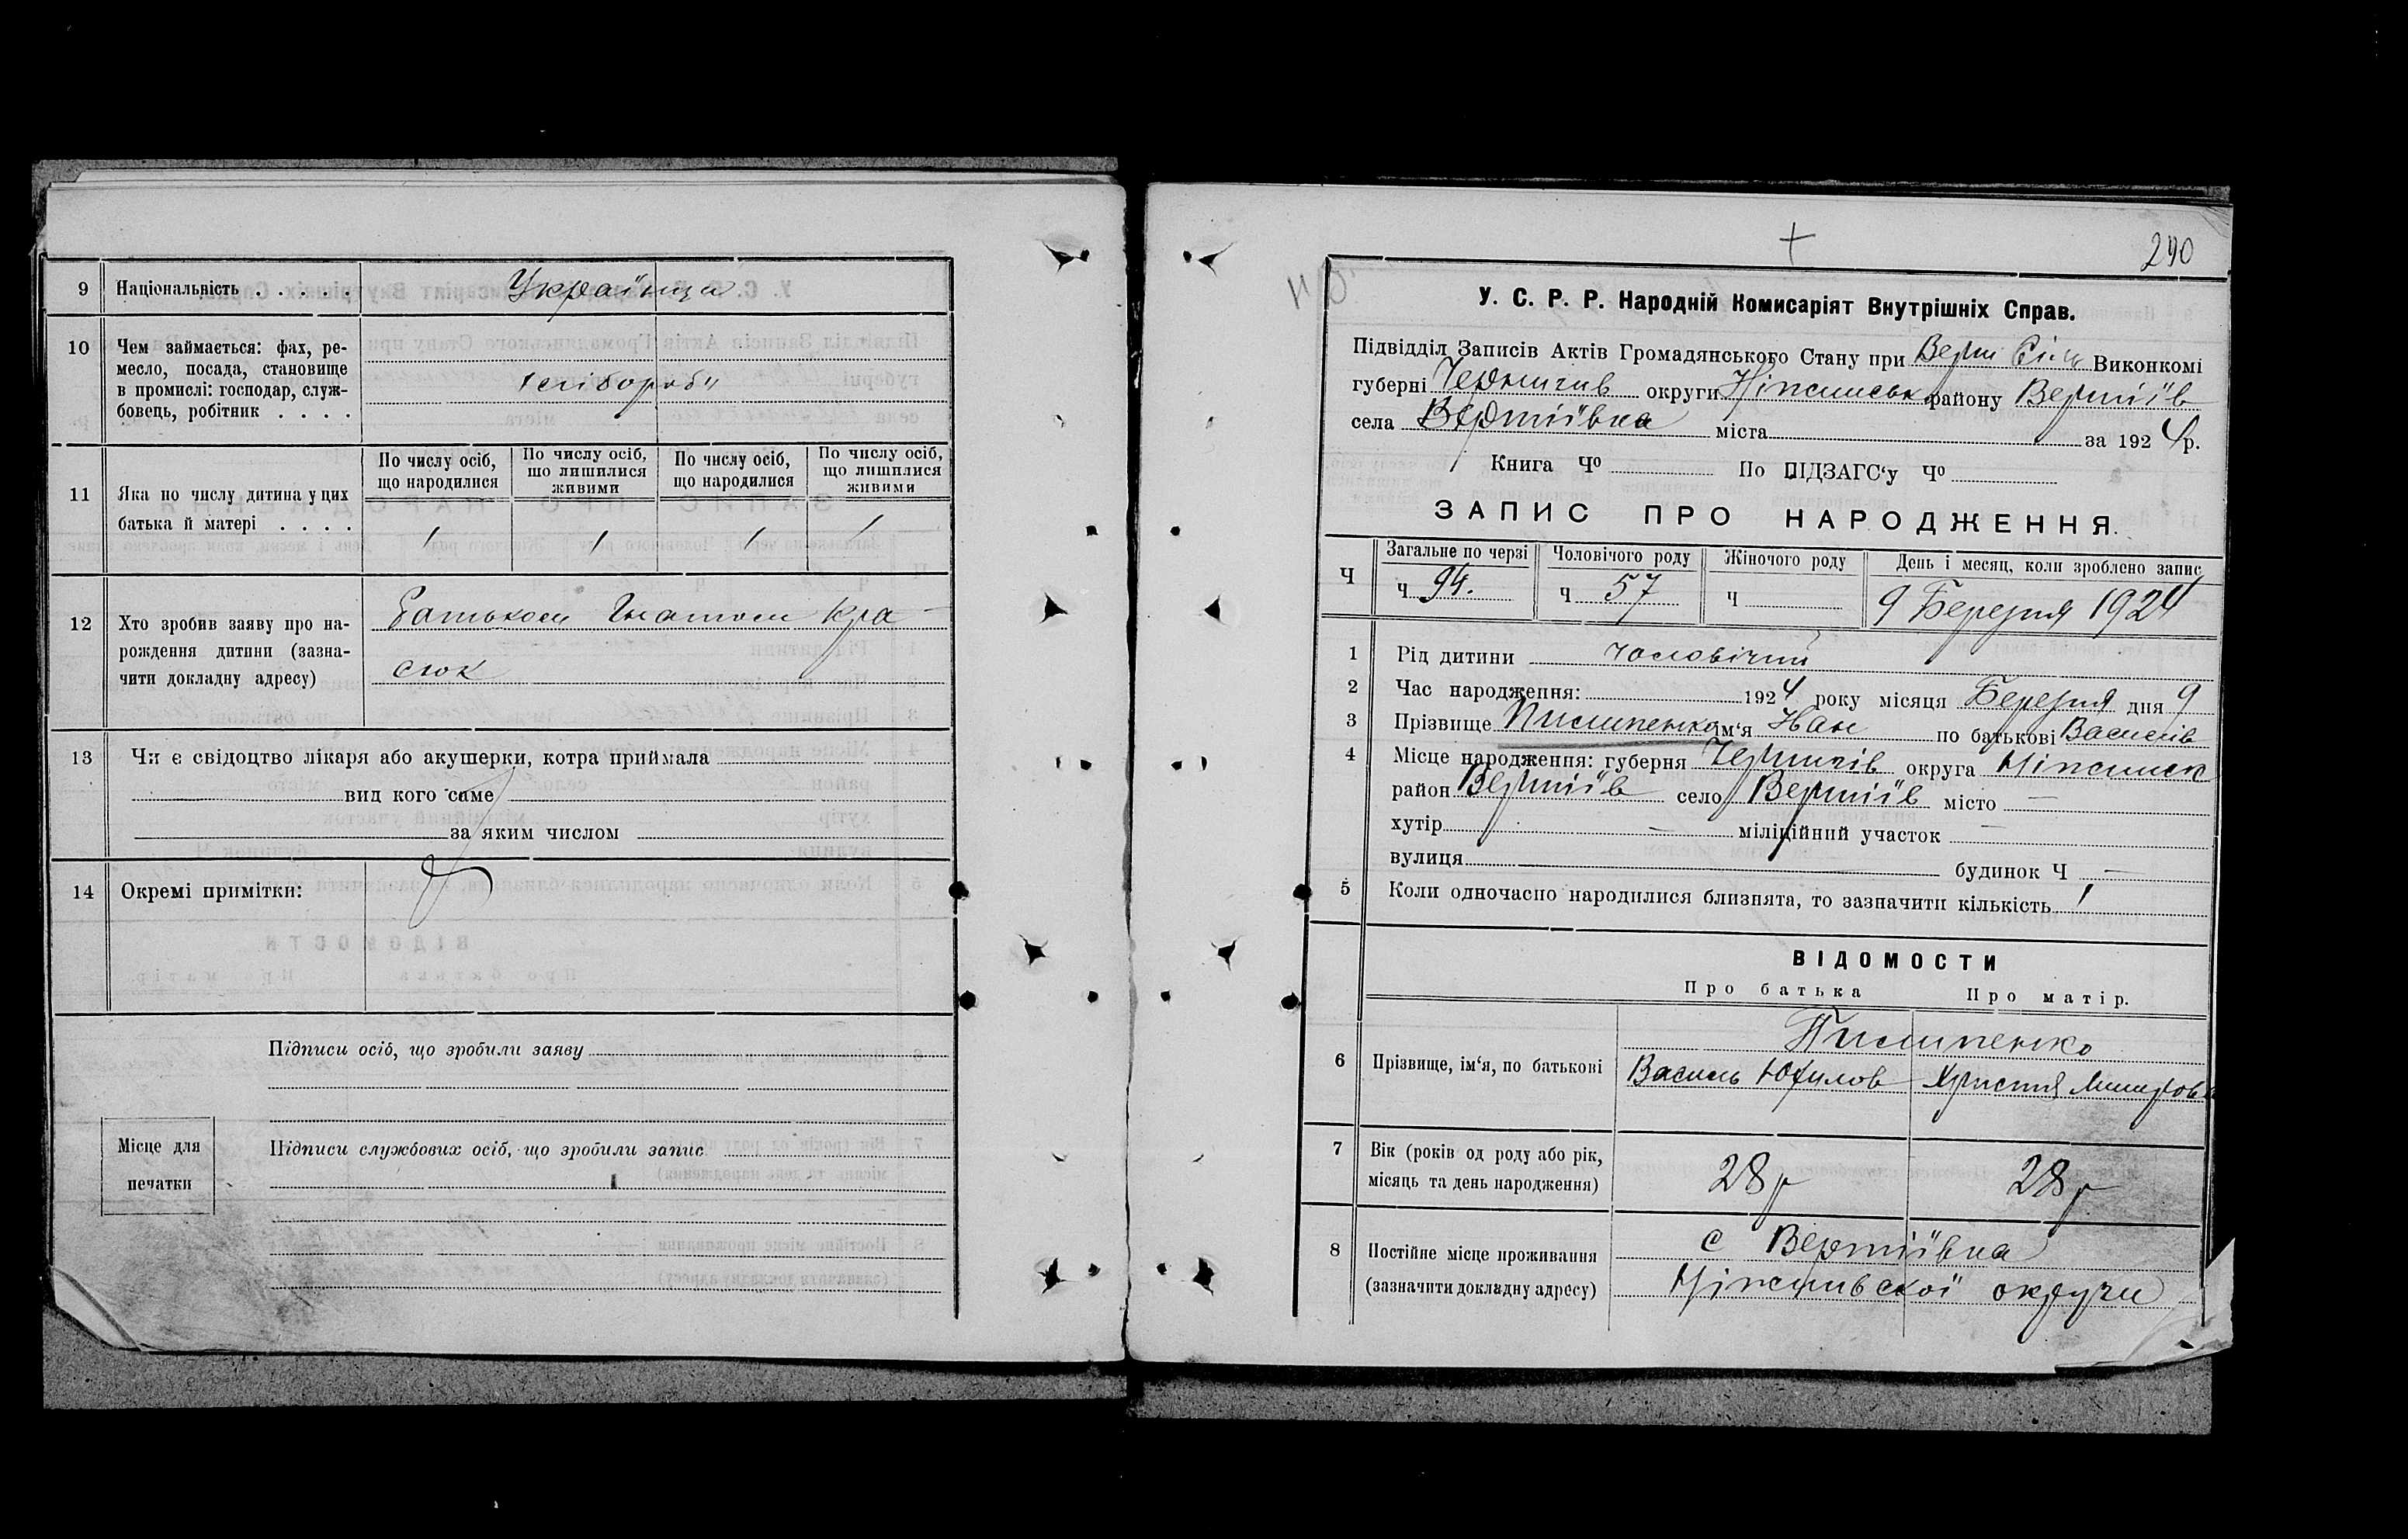 9 Національність . . . . . Українци
10 Чем займається: фах, ре-
месло, посада, становище
в промислі: господар, служ-
бовець, робітник . . . .
хлібороби
11 Яка по числу дитина у цих
батька й матері . . . .
По числу осіб, що народилися
По числу осіб, що лишилися живими
По числу осіб, що народилися
По числу осіб, що лишилися живими
1 1 1 1
12 Хто зробив заяву про на-
рождення дитини (зазна-
чити докладну адресу)
Батьком Гнатом Кра-
сюк
13 Чи є свідоцтво лікаря або акушерки, котра приймала
вид кого саме
за яким числом
14 Окремі примітки:
Підписи осіб, що зробили заяву
Місце для
печатки
Підписи службових осіб, що зробили запис
290
У. С. Р. Р. Народній Комисаріят Внутрішніх Справ.
Підвідділ Записів Актів Громадянського Стану при Верт Виконкомі
губерні Чернигів округи Ніжинськ району Вертіїв
села Вертіївка міста за 1924 р.
Книга Ч° По ПІДЗАГС‘у Ч°
ЗАПИС ПРО НАРОДЖЕННЯ.
Ч Загальне по черзі Чоловічого роду Жіночого роду День і месяц, коли зроблено запис
ч 94. ч 57 ч 9 Березня 1924
1 Рід дитини чоловічий
2 Час народження: 1924 року місяця Березня дня 9
3 Прізвище Пилипенко ім‘я Иван по батькові Василів
4 Місце народження: губерня Чернигів округа Ніжинск
район Вертіїв село Вертіїв місто —
хутір — міліційний участок —
вулиця — будинок Ч —
5 Коли одночасно народилися близнята, то зазначити кількість 1
ВІДОМОСТИ
Про батька Про матір.
6 Прізвище, ім‘я, по батькові
Пилипенко
Василь Юхимов Христия
7 Вік (років од роду або рік,
місяць та день народження)
28 р 28 р
8 Постійне місце проживання
(зазначити докладну адресу)
с Вертіївка
Ніжинвської округи